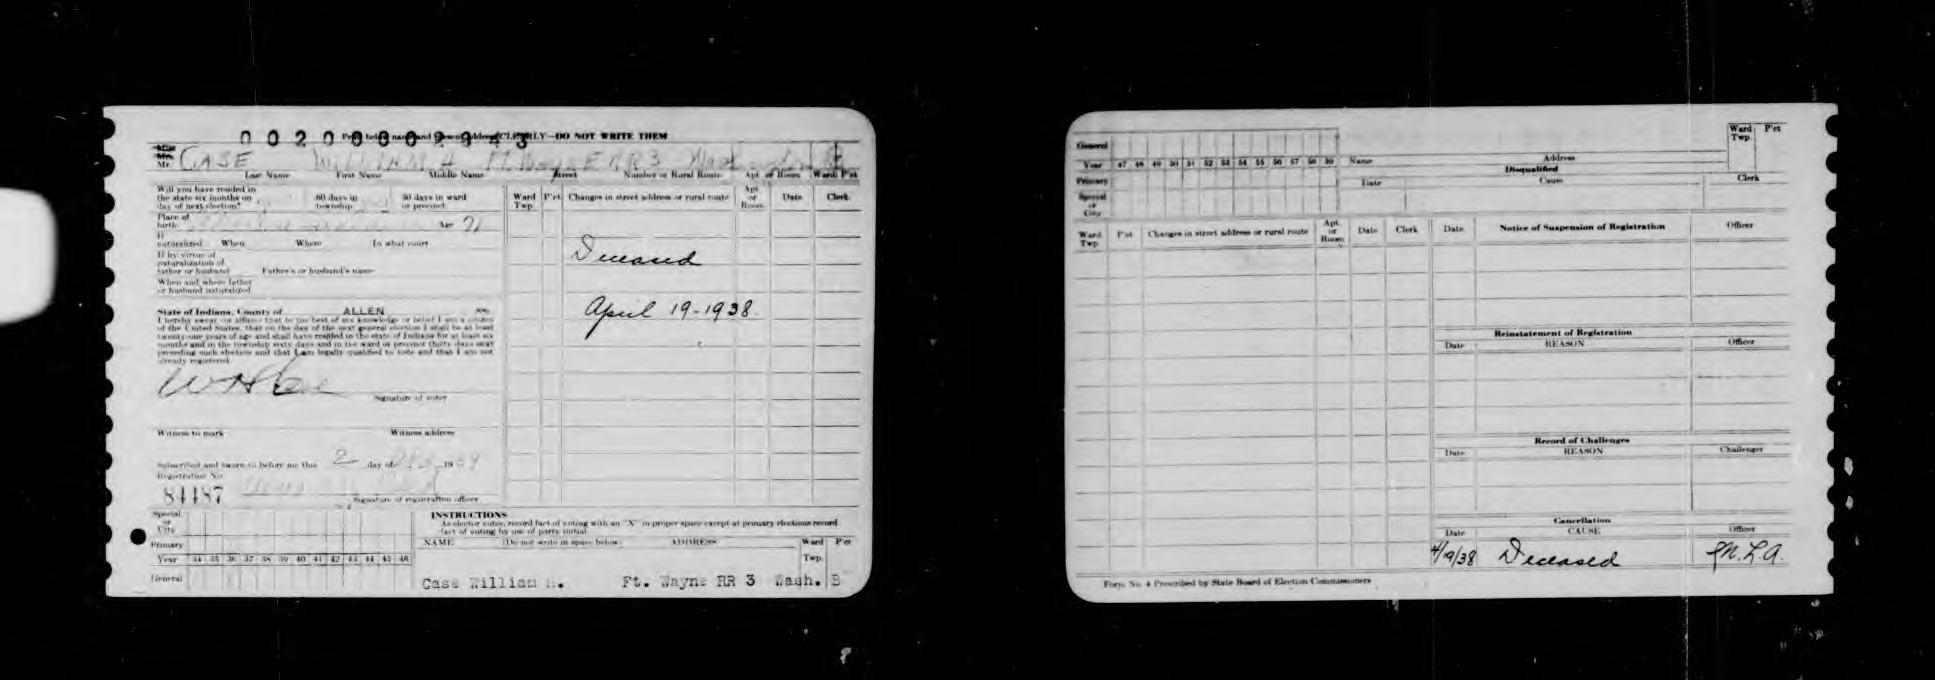 00200002943
Print below name and present address CLEARLY—DO NOT WRITE THEM
Miss
Mrs.
Mr. CASE WILLIAM H Ft. Wayne RR 3 Washington B
Last Name First Name Middle Name Street Number or Rural Route Apt or Room Ward P'ct
Will you have resided in
the state six months on
day of next election?
60 days in
township
30 days in ward
or precinct
Place of
birth
Age 71
If
naturalized When Where In what court
If by virtue of
naturalization of
father or husband Father's or husband's name
When and where father
or husband naturalized
State of Indiana, County of ALLEN ss:
I hereby swear (or affirm) that to the best of my knowledge or belief I am a citizen
of the United States, that on the day of the next general election I shall be at least
twenty-one years of age and shall have resided in the state of Indiana for at least six
months and in the township sixty days and in the ward or precinct thirty days next
preceding such election and that I am legally qualified to vote and that I am not
already registered.
W H Case
Signature of voter
Witness to mark Witness address
Subscribed and sworn to before me this 2 day of 19
Registration No.
84487
Signature of registration officer
Ward
Twp.
P'ct
Changes in street address or rural route
Apt
or
Room
Date
Clerk
Deceased
April 19-1938.
Special
or
City
Primary
Year 34 35 36 37 38 39 40 41 42 43 44 45 46
General
INSTRUCTIONS
As elector votes, record fact of voting with an "X" in proper space except at primary elections record
fact of voting by use of party initial
NAME (Do not write in space below) ADDRESS Ward P'ct
Twp.
Case William H. Ft. Wayne RR 3 Wash. B
General
Year 47 48 49 50 51 52 53 54 55 56 57 58 59
Primary
Special
or
City
Name Address
Ward
Twp.
P'ct
Disqualified
Date Cause Clerk
Ward
Twp.
P'ct
Changes in street address or rural route
Apt.
or
Room
Date
Clerk
Date Notice of Suspension of Registration Officer
Reinstatement of Registration
Date REASON Officer
Record of Challenges
Date REASON Challenger
Cancellation
Date CAUSE Officer
4/19/38 Deceased
Form No. 4 Prescribed by State Board of Election Commissioners